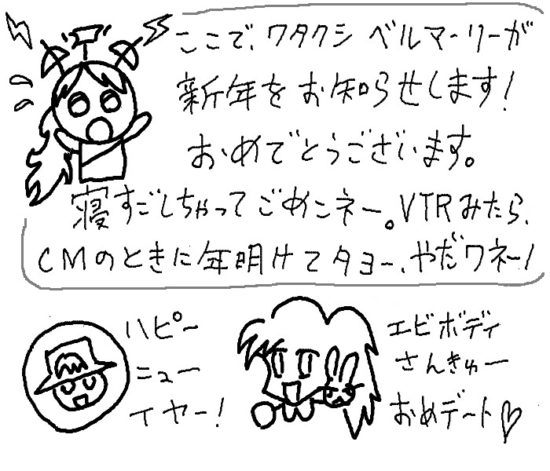 ここで、ワタクシ ベルマーリーが
新年をお知らせします!
おめでとうございます。
寝すごしちゃってごめんネー。VTRみたら、
CMのときに年明けてタヨー、やだワネー!
ハピー
ニュー
イヤー!
エビボディ
さんきゅー
おめデート♡